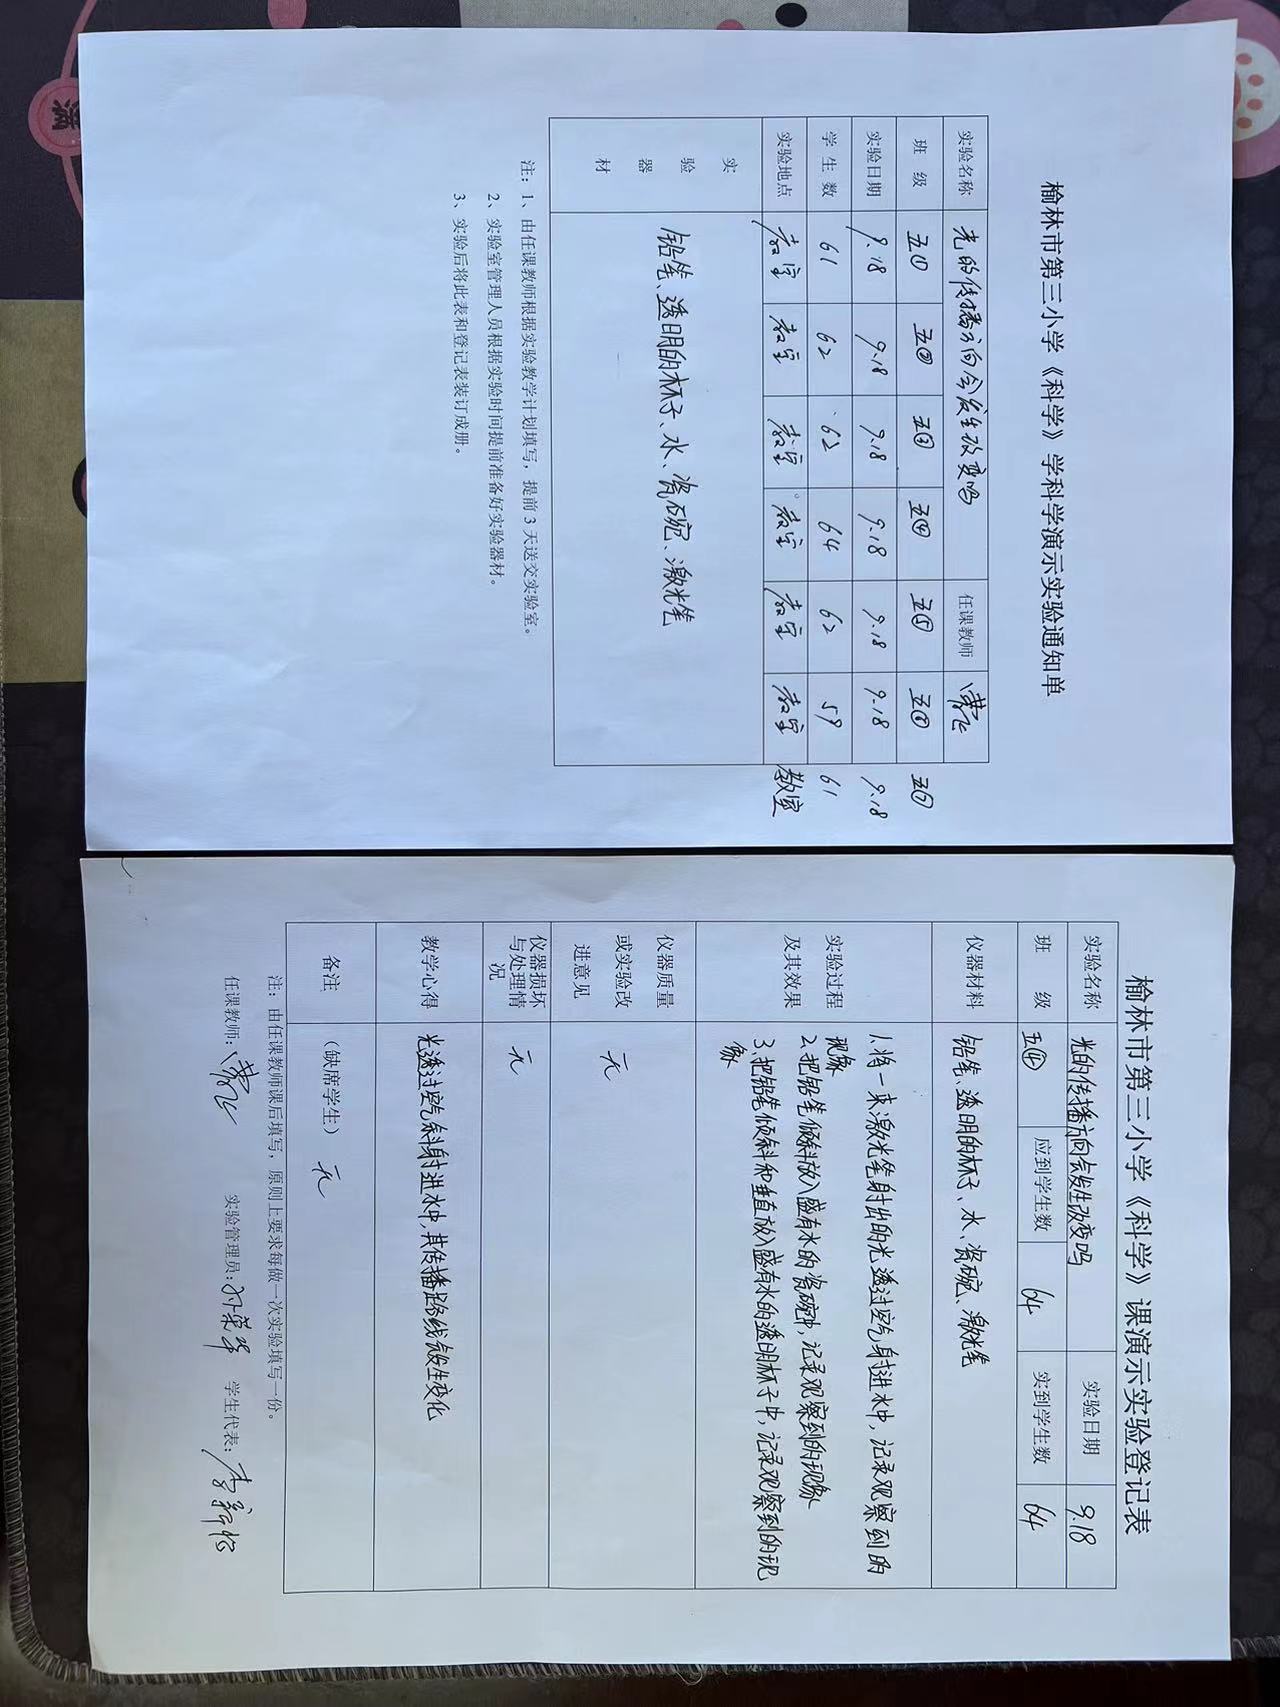 榆林市第三小学《科学》学科学演示实验通知单
实验名称 光的传播方向会发生改变吗 任课教师
班级 五① 五② 五③ 五④ 五⑤ 五⑥ 五⑦
实验日期 9.18 9.18 9.18 9.18 9.18 9.18 9.18
学生数 61 62 62 64 62 59 61
实验地点 教室 教室 教室 教室 教室 教室 教室
实验器材 铅笔、透明的杯子、水、瓷碗、激光笔
注：1、由任课教师根据实验教学计划填写，提前3天送交实验室。
2、实验室管理人员根据实验时间提前准备好实验器材。
3、实验后将此表和登记表装订成册。
榆林市第三小学《科学》课演示实验登记表
实验名称 光的传播方向会发生改变吗 实验日期 9.18
班级 五④ 应到学生数 64 实到学生数 64
仪器材料 铅笔、透明的杯子、水、瓷碗、激光笔
实验过程及其效果
1.将一束激光笔射出的光透过空气射进水中，记录观察到的
现象
2.把铅笔倾斜放入盛有水的瓷碗中，记录观察到的现象
3.把铅笔倾斜和垂直放入盛有水的透明杯子中，记录观察到的现
象
仪器质量或实验改进意见 无
仪器损坏与处理情况 无
教学心得 光透过空气斜射进水中，其传播路线会发生变化
备注 （缺席学生） 无
注：由任课教师课后填写，原则上要求每做一次实验填写一份。
任课教师： 实验管理员： 学生代表：